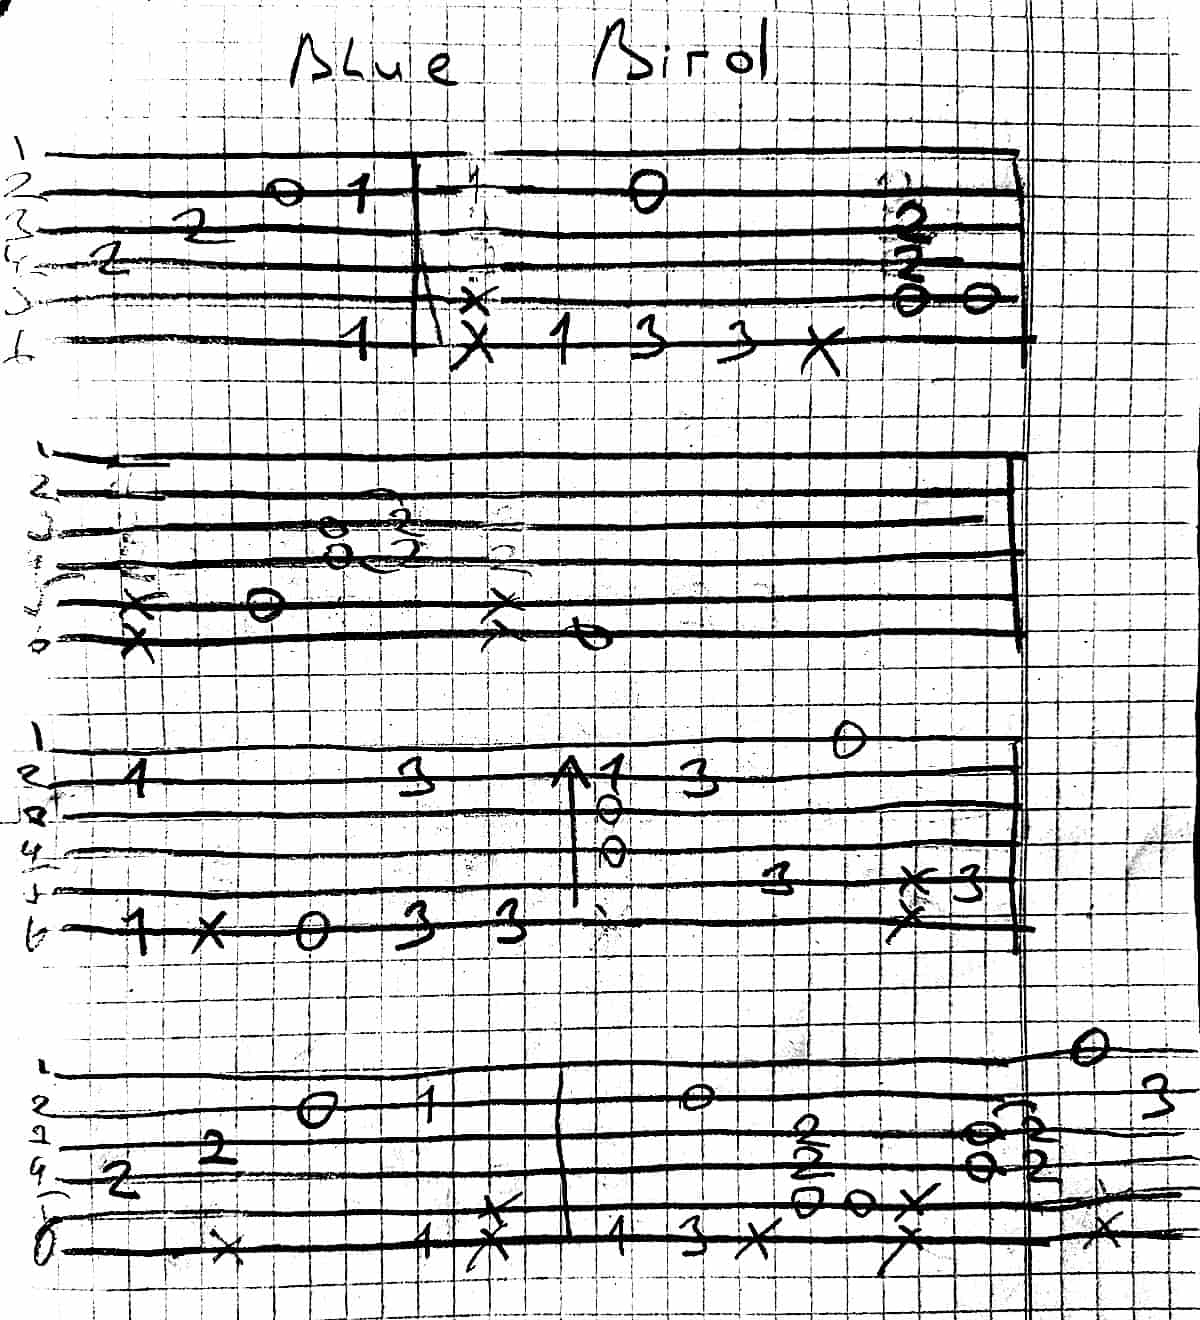 Blue Bird
1
2 0 1 0
3 2 2
4 2 2
5 X 0 0
6 1 X 1 3 3 X
1
2
0 2
0 2
X 0 X
6 X X 0
1 0
2 1 3 1 3
3 0
4 0
5 3 X 3
6 1 X 0 3 3 X
1 0
2 0 1 0 3
3 2 2 0 2
4 2 2 0 2
X 0 0 X
6 X 1 X 1 3 X X X